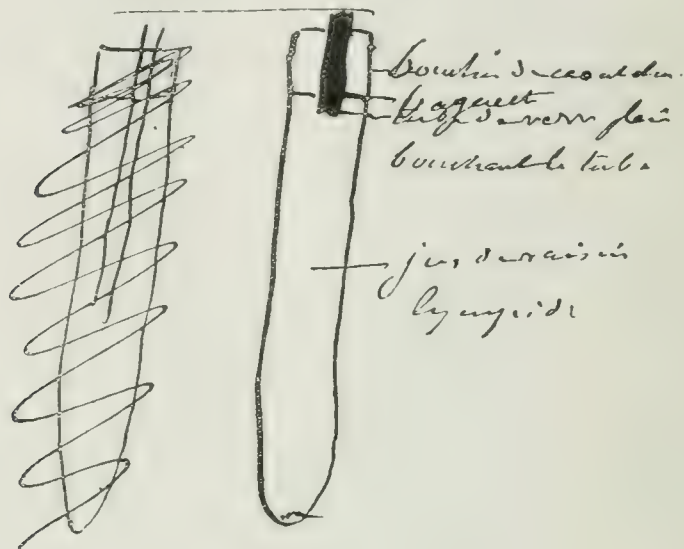 bouchon de caoutchouc
baguette
tube de verre plein
bouchant le tube
jus de raisin
lympide